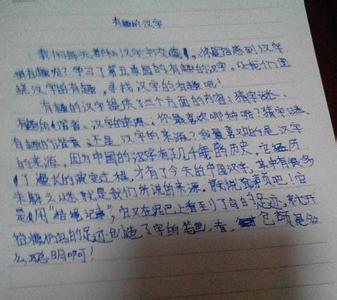 有趣的汉字
我们每天都和汉字打交道,你是否感到汉字
很有趣呢?学习了第五单园的有趣的汉字,让我们走
进汉字的有趣,寻找汉字的有趣吧!
有趣的汉字提供了三个方面的内容:猜字谜、
有趣的谐音、汉字的来源。你最喜欢哪种呢?猜字谜、
有趣的谐音 还是汉字的来源?我最喜欢的是汉字
的来源。因为中国的汉字有了几千年的历史,它经历
了漫长的演变过程,才有了今天的中国汉字,其中有很多
就是我们所说的来源。
是用“结绳记录”,它又在泥巴上看到了鸟的足迹,就开
的足迹,创造了字的笔画,
么聪明啊!